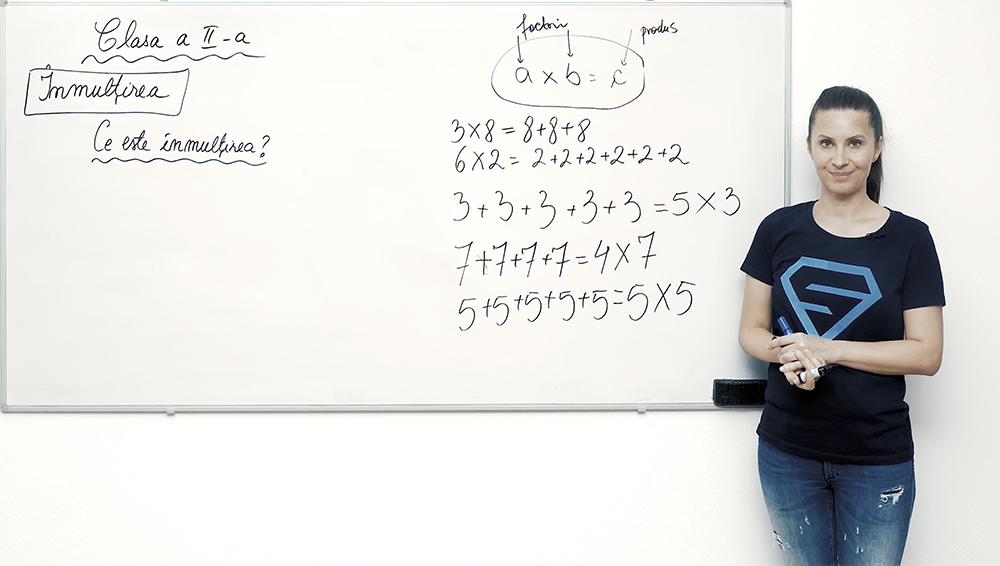 Clasa a II-a
Înmulțirea
Ce este înmulțirea?
factori produs
a x b = c
3x8 = 8+8+8
6x2 = 2+2+2+2+2+2
3+3+3+3+3 = 5x3
7+7+7+7 = 4x7
5+5+5+5+5 = 5x5